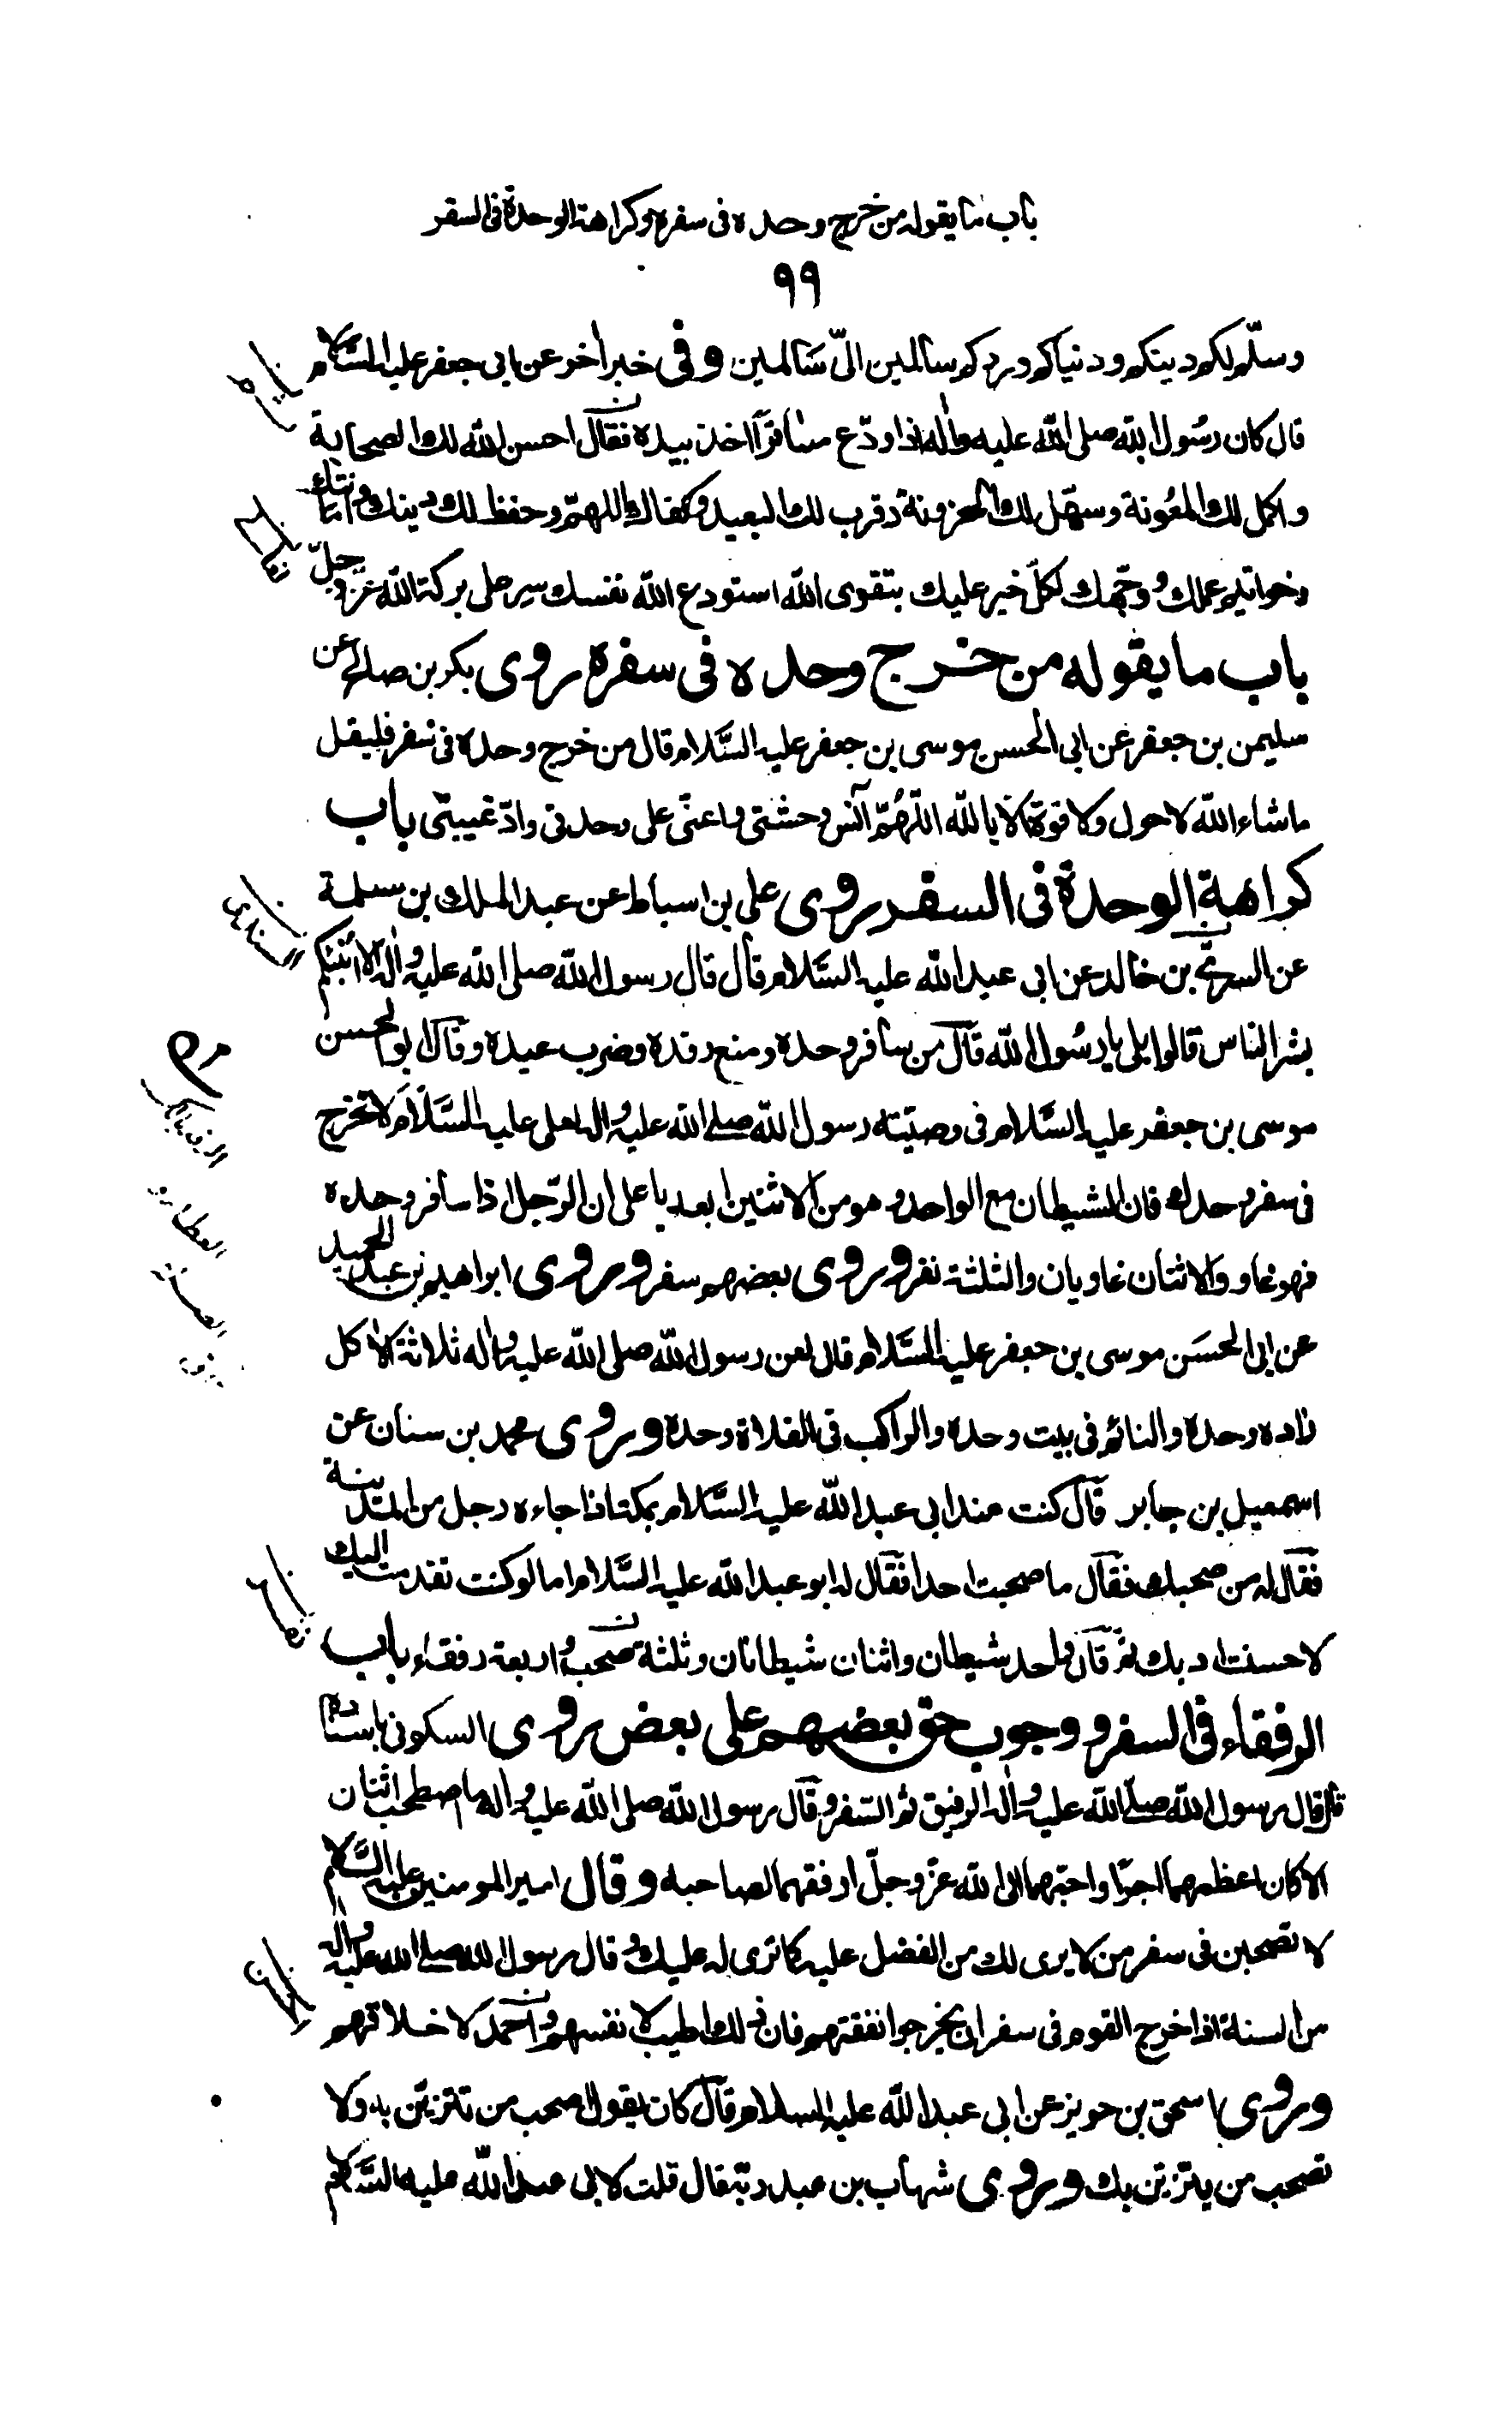 باب ما يقوله من خرج وحده فى سفره وكراهة الوحدة فى السفر
٩٩
وسلّم لكم دينكم ودنياكم وردكم سالمين الىّ سَالمين وفى خبر اٰخر عن ابى جعفر عليه السَّلام
قال كان رسُول الله صلى الله عليه واٰله اذا ودّع مسافرًا اخذ بيده فقال احسن الله لك الصحابة
واكمل لك المعُونة وسهّل لك الحزونة وقرب لك البعيد وكفاك المهمّ وحفظ لك دينك وامانتك
وخواتيم عملك ووجّهك لكلّ خير عليك بتقوى الله استودع الله نفسك سير على بركة الله عزّ وجلّ
باب ما يقوله من خرج وحده فى سفره روى بكر بن صالح عن
سليمن بن جعفر عن ابى الحسن موسى بن جعفر عليه السَّلام قال من خرج وحده فى سفر فليقل
ما شاء الله لا حول ولا قوة الا بالله اللّهُمّ اٰنس وحشتى واعنّى على وحدتى وادّ غيبتى باب
كراهة الوحدة فى السفر روى على بن اسباط عن عبد الملك بن سلمة
عن السرىّ بن خالد عن ابى عبد الله عليه السَّلام قال قال رسول الله صلى الله عليه واٰله الا انبئكم
بشر الناس قالوا بلى يا رسُول الله قال من سافر وحده ومنع رفده وضرب عبده وقال ابو الحسن
موسى بن جعفر عليه السَّلام فى وصيّته رسول الله صلے الله عليه واله لعلى عليه السَّلام لا تخرج
فى سفر وحدك فان الشيطان مع الواحد وهو من الاثنين ابعد يا على ان الرّجل اذا سافر وحده
فهو غاو والاثنان غاويان والثلثة نفر وروى بعضهم سفر وروى ابراهيم بن عبد الحميد
عن ابى الحسَن موسى بن جعفر عليه السَّلام قال لعن رسول الله صلى الله عليه واٰله ثلاثة الاٰكل
زاده وحده والنائم فى بيت وحده والراكب فى الفلاة وحده وروى محمد بن سنان عن
اسمعيل بن جابر قال كنت عند ابى عبد الله عليه السَّلام بمكة اذا جاءه رجل من المدينة
فقال له من صحبك فقال ما صحبت احدا فقال له ابو عبد الله عليه السَّلام اما لو كنت تقدمت اليك
لاحسنت ادبك ثم قال واحد شيطان واثنان شيطانان وثلثة صحب واربعة رفقاء باب
الرفقاء فى السفر ووجوب حق بعضهم على بعض روى السكونى باسناده
قال قال رسول الله صلے الله عليه واٰله الرفيق ثم السّفر وقال رسول الله صلى الله عليه واله ما اصطحب اثنان
الا كان اعظمهما اجرًا واحبّهما الى الله عزّ وجلّ ارفقهما لصاحبه وقال امير المومنين عليه السَّلام
لا تصحبن فى سفر من لا يرى لك من الفضل عليه كما ترى له عليك وقال رسول الله صلے الله عليه واٰله
من السنة اذا خرج القوم فى سفر ان يخرجوا نفقتهم فان ذلك اطيب لانفسهم واحمد لاخلاقهم
وروى اسحق بن حريز عن ابى عبد الله عليه السلام قال كان يقول اصحب من تتزيّن به ولا
تصحب من يتزيّن بك وروى شهاب بن عبد ربّه قال قلت لابى عبد الله عليه السَّلام